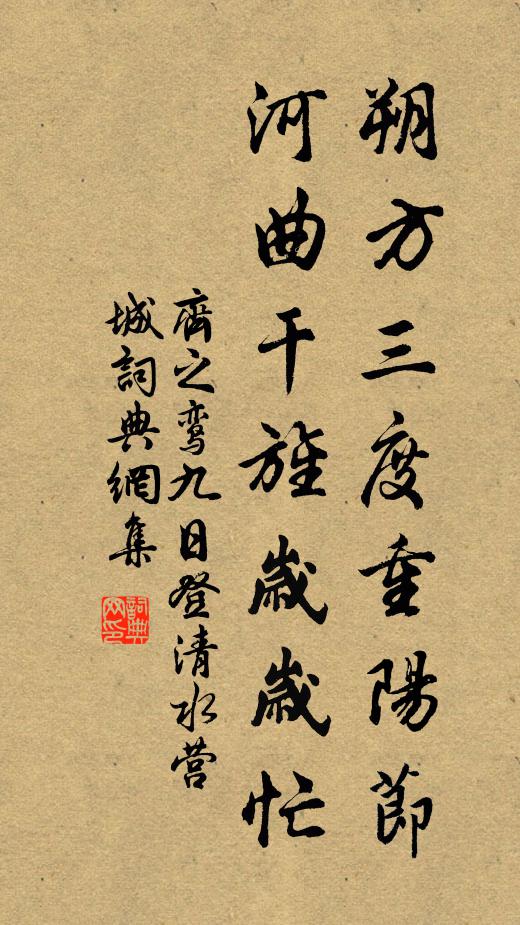 朔方三度重陽節
河曲干旌歲歲忙
齊之鸾九日登清水营
城詞典網集
詞典网印